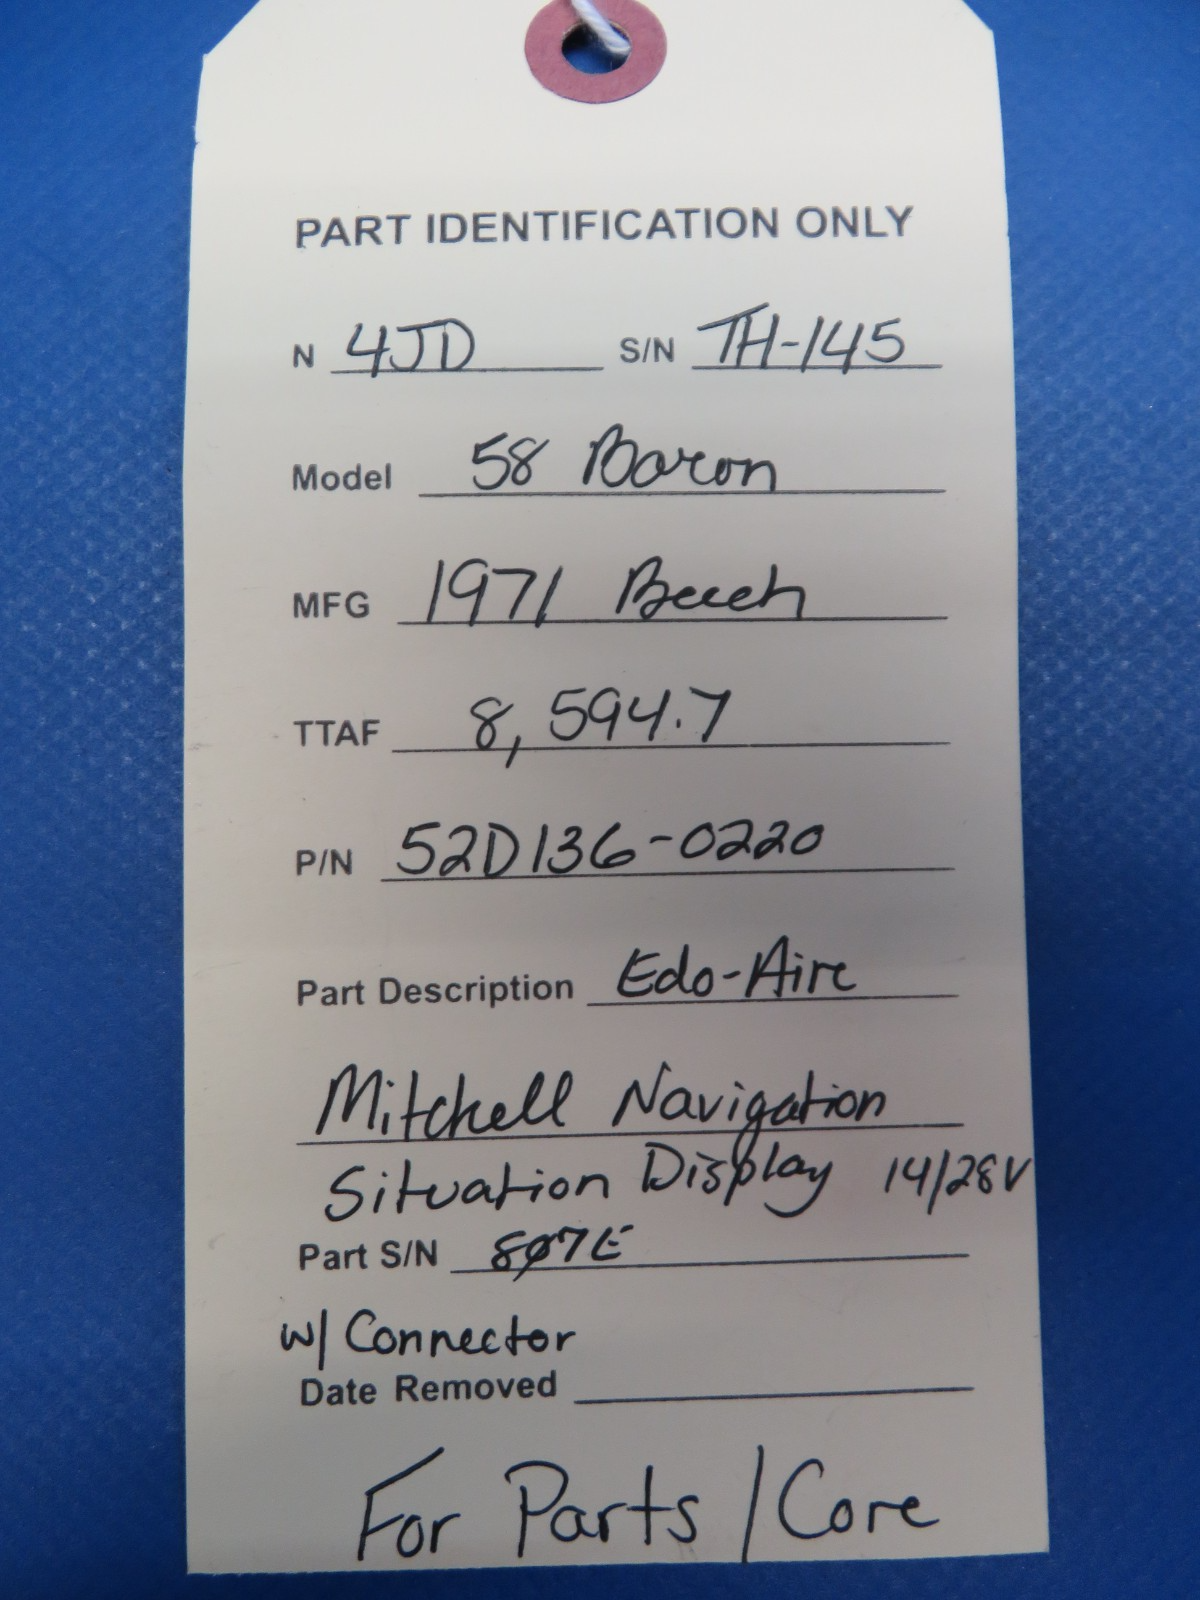 PART IDENTIFICATION ONLY
N 4JD S/N TH-145
Model 58 Baron
MFG 1971 Beech
TTAF 8,594.7
P/N 52D136-0220
Part Description Edo-Aire
Mitchell Navigation
Situation Display 14/28V
Part S/N 807E
w/ Connector
Date Removed
For Parts / Core